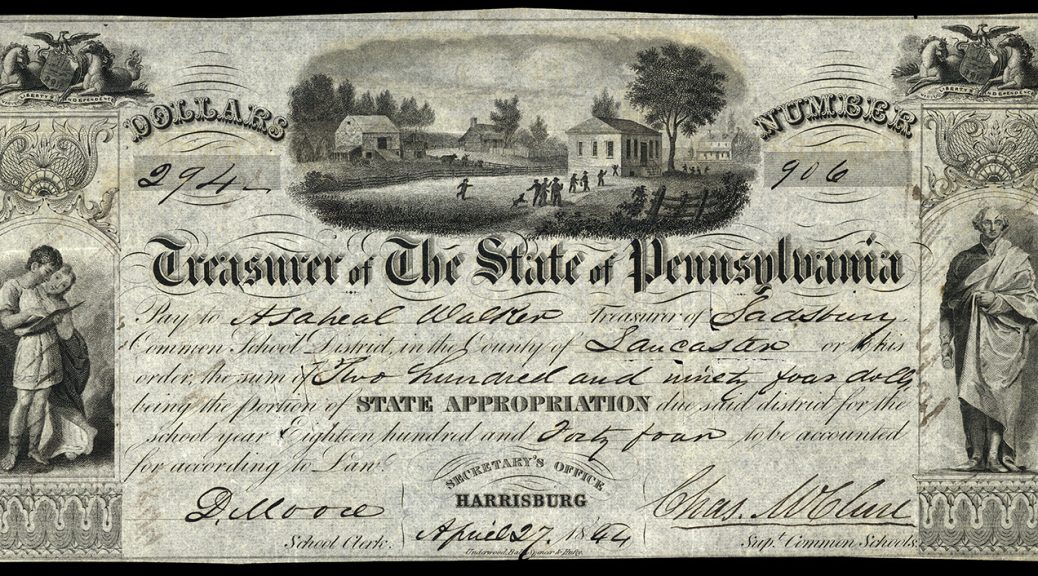 LIBERTY & INDEPENDENCE
LIBERTY & INDEPENDENCE
DOLLARS
NUMBER
294
906
Treasurer of The State of Pennsylvania
Pay to Asaheal Walker Treasurer of Sadsbury
Common School District, in the County of Lancaster or his
order, the sum of Two hundred and ninety four dolls
being the portion of STATE APPROPRIATION due said district for the
school year Eighteen hundred and Forty four to be accounted
for according to Law.
SECRETARY'S OFFICE
HARRISBURG
D. Moore
April 27. 1844
Chas. McClure
School Clerk.
Supt. Common Schools.
Underwood, Bald, Spencer &